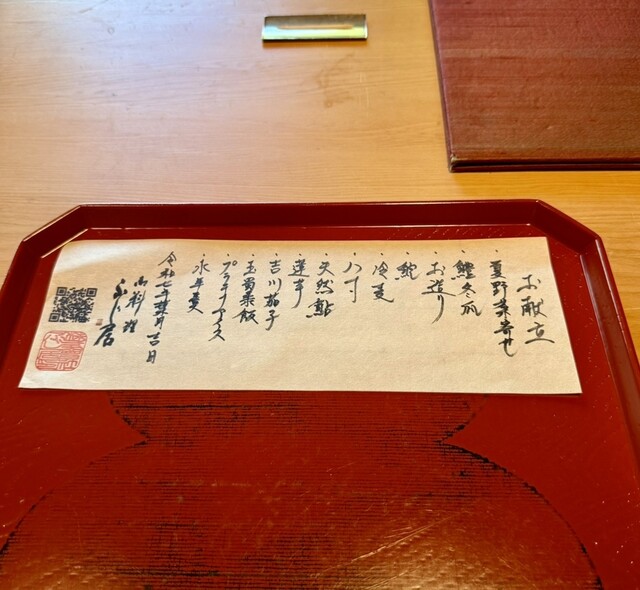 お献立
・夏野菜寄せ
・鱧冬瓜
・お造り
・鮑
・冷麦
・八寸
・天然鮎
・蓮芋
・吉川茄子
・玉蜀黍飯
・プラチナアイス
・水羊羹
令和七年葉月吉日
御料理
ふじ居